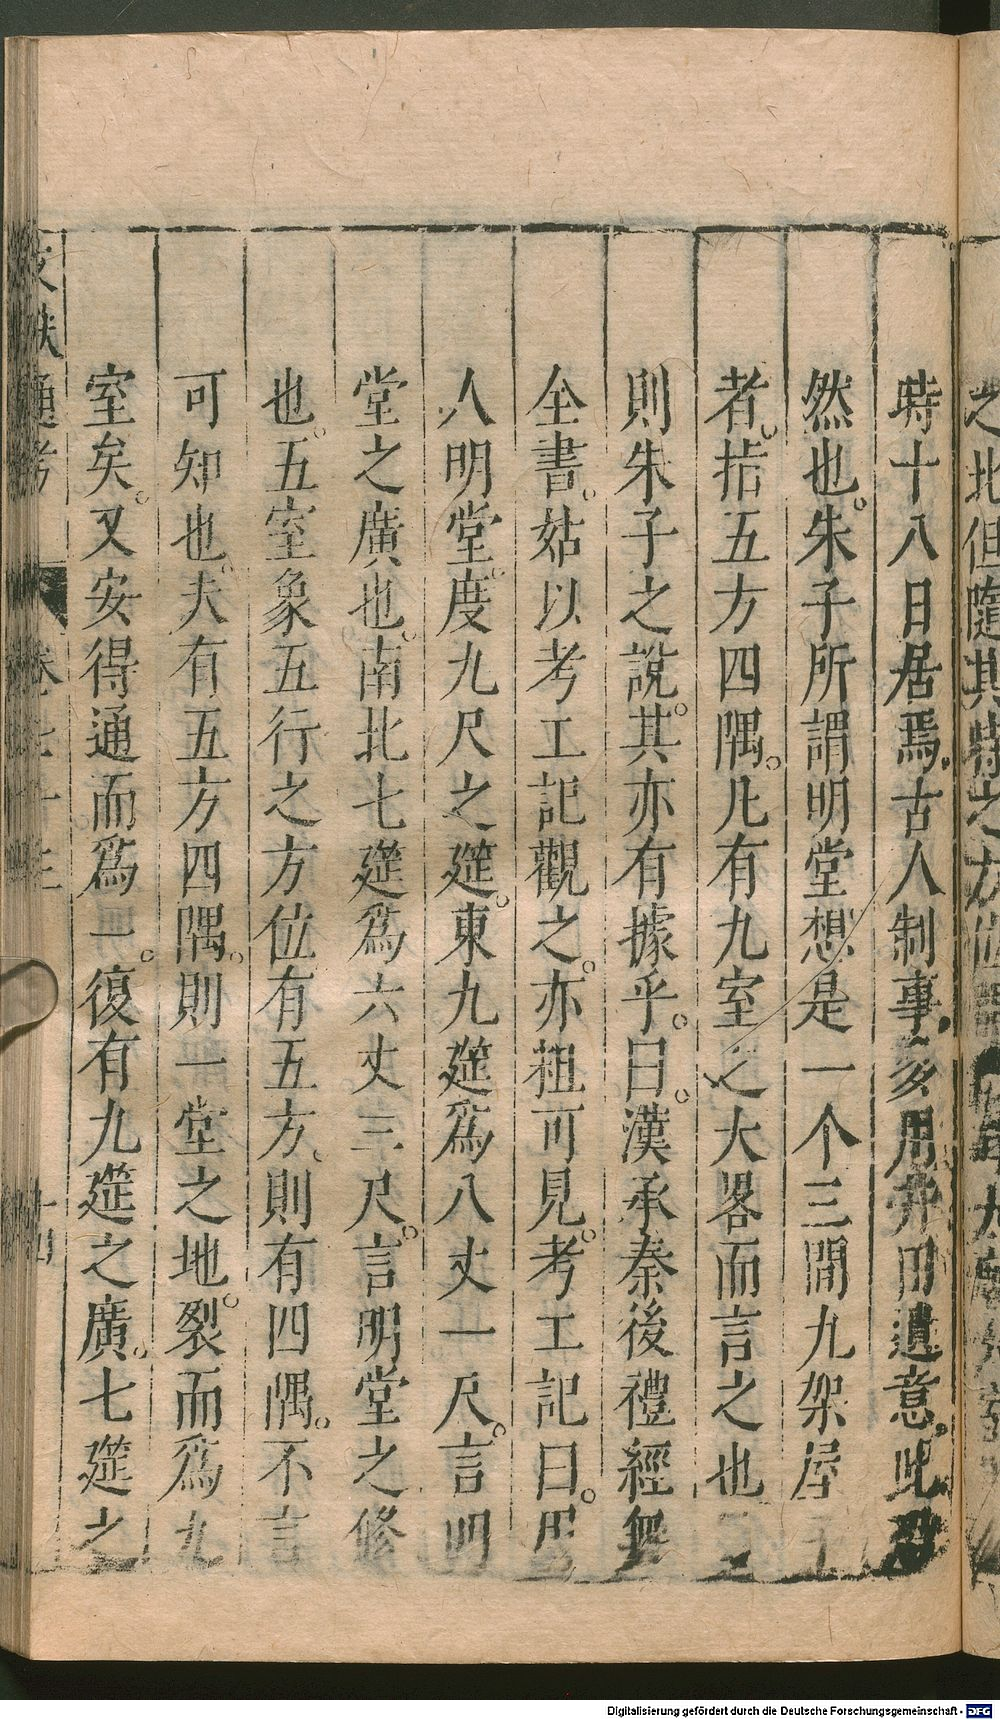 之北但隨其時之方位
時十八日居焉古人制事多用井田遺意此
然也。朱子所謂明堂想是一个三間九架屋子
者。指五方四隅。凡有九室之大畧而言之也
則朱子之說。其亦有據乎。曰。漢承秦後禮經無
全書。姑以考工記觀之。亦粗可見。考工記曰。周
人明堂。度九尺之筵。東九筵為八丈一尺。言明
堂之廣也。南北七筵為六丈三尺。言明堂之修
也。五室象五行之方位有五方。則有四隅。不言
可知也。夫有五方四隅。則一堂之地。裂而為九
室矣。又安得通而為一。復有九筵之廣。七筵之
文獻通考 卷七十三 十四
Digitalisierung gefördert durch die Deutsche Forschungsgemeinschaft - DFG